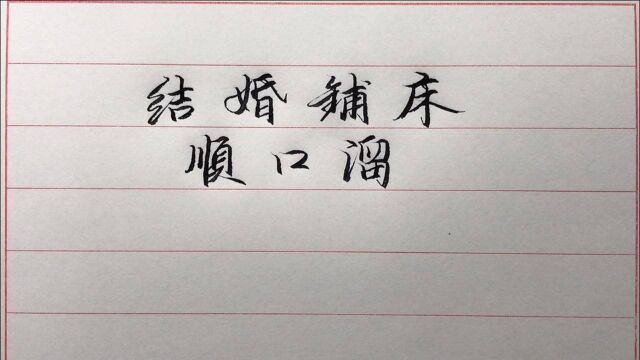 结婚铺床
順口溜